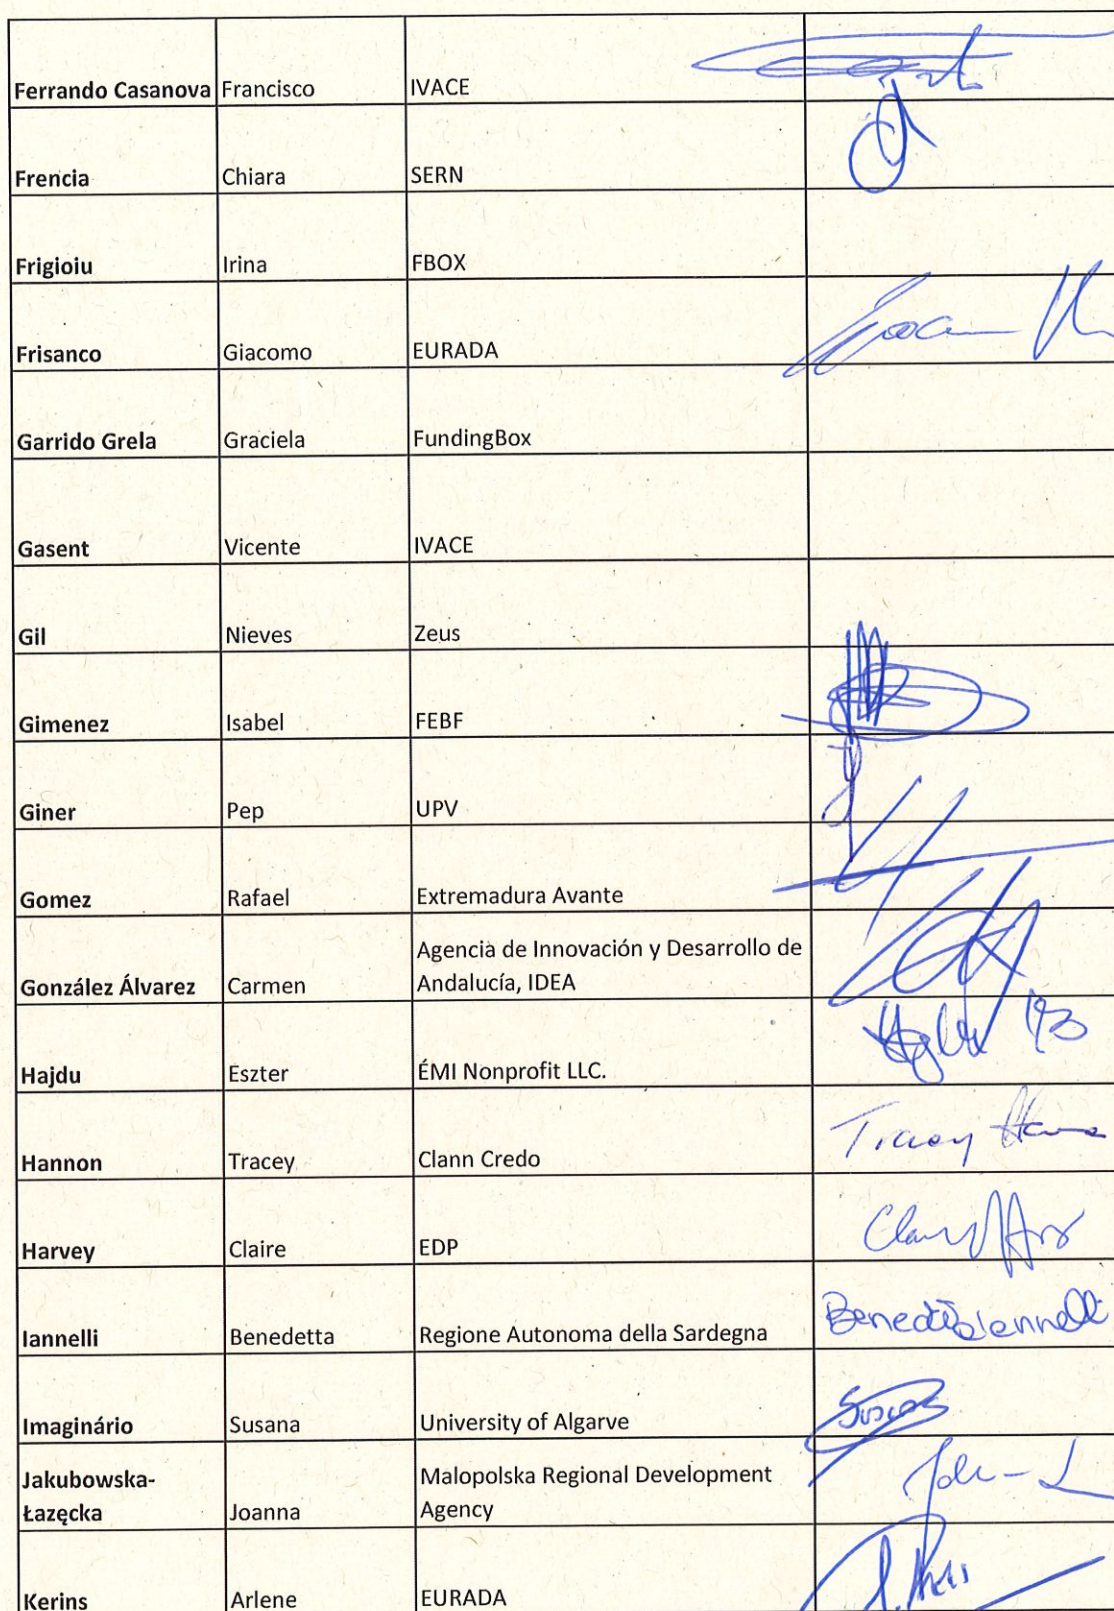 Ferrando Casanova Francisco IVACE
Frencia Chiara SERN
Frigioiu Irina FBOX
Frisanco Giacomo EURADA
Garrido Grela Graciela FundingBox
Gasent Vicente IVACE
Gil Nieves Zeus
Gimenez Isabel FEBF
Giner Pep UPV
Gomez Rafael Extremadura Avante
Agencia de Innovación y Desarrollo de
González Álvarez Carmen Andalucía, IDEA
Hajdu Eszter ÉMI Nonprofit LLC.
Hannon Tracey Clann Credo Tracey
Harvey Claire EDP
Iannelli Benedetta Regione Autonoma della Sardegna Benedetta Iannelli
Imaginário Susana University of Algarve
Jakubowska- Malopolska Regional Development
Łazęcka Joanna Agency
Kerins Arlene EURADA